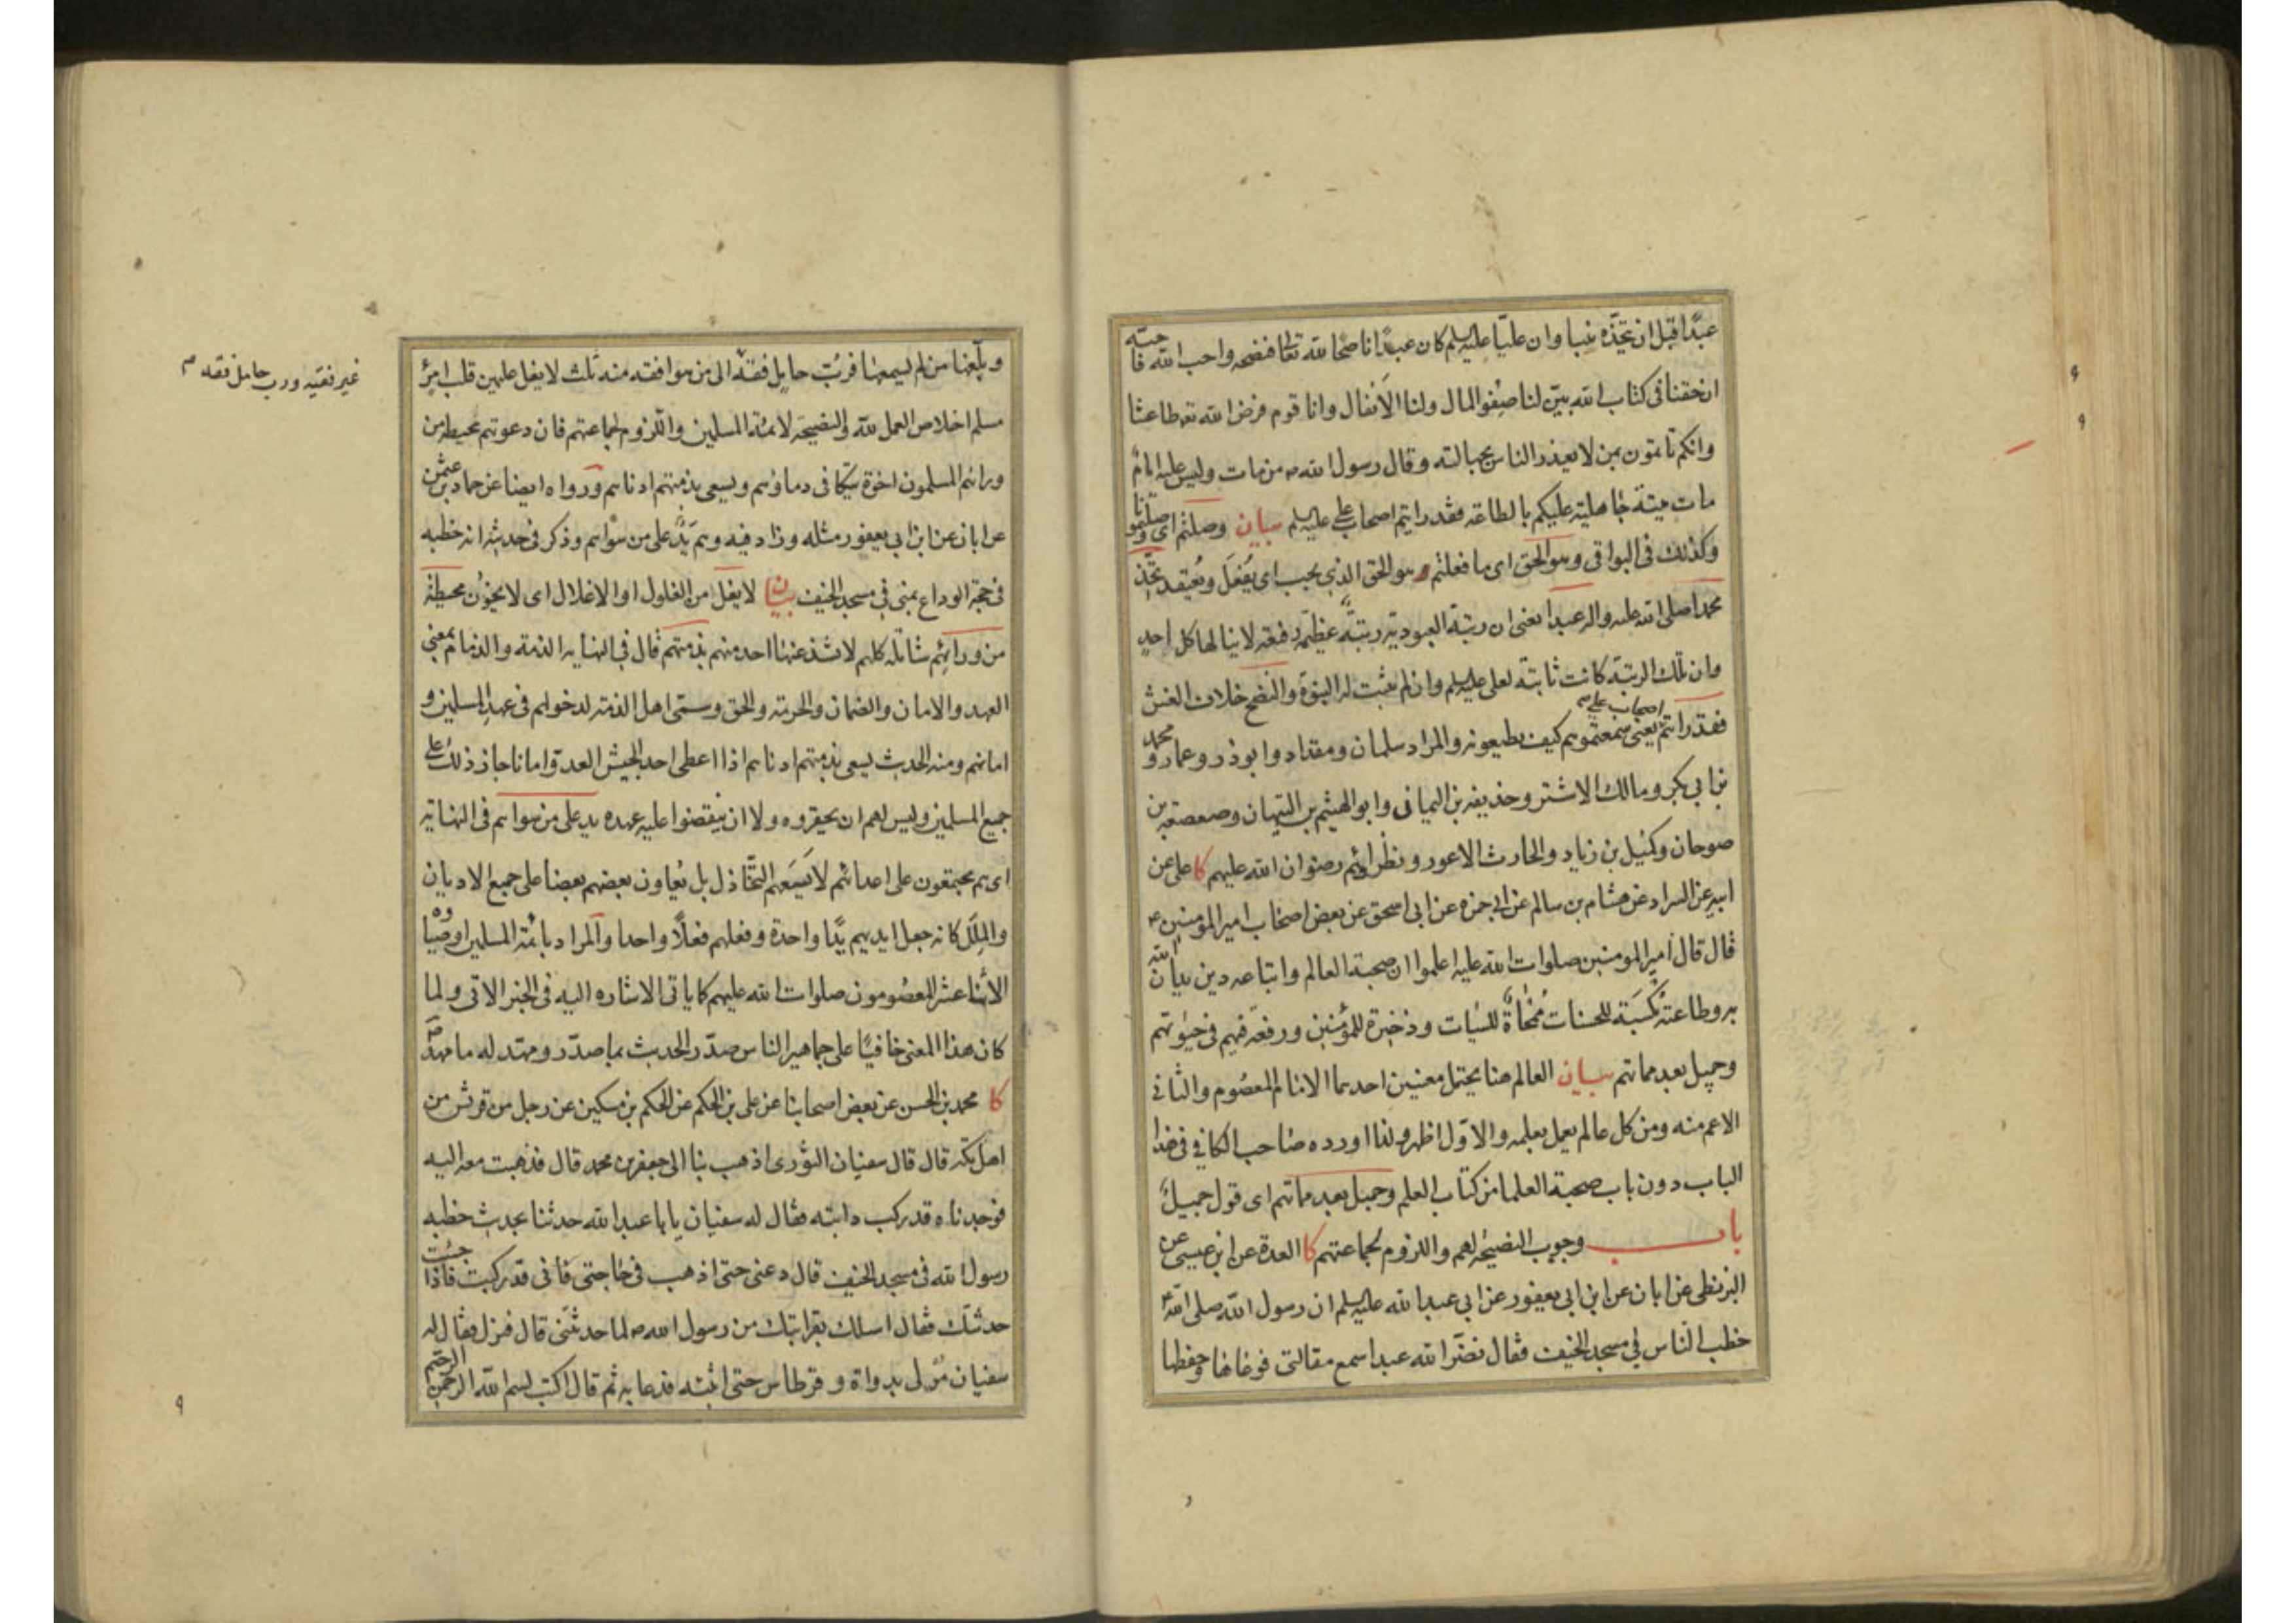 عبدا قبل ان تتخذه نبيا وان عليا عليه السلم كان عبدا ناصحا لله تعالى فنصحه واحب الله فاحبه
ان حقنا فى كتاب الله بين لنا صفو المال ولنا الانفال وانا قوم فرض الله تعه طاعتنا
وانكم تاتمون بمن لا يعذر الناس بجهالته وقال رسول الله ص من مات وليس عليه امام
مات ميتة جاهلية عليكم بالطاعة فقد رايتم اصحاب على عليه السلم بيان وصلتم اى وصلتمونا
وكذلك فى البواقى وهو الحق اى ما فعلتم هو الحق الذى يجب اى يفعل ويعتقد تتخذ
محمدا صلى الله عليه واله عبدا يعنى ان رتبة العبودية رتبة عظيمة رفيعة لا ينالها كل احد
وان تلك الرتبة كانت ثابتة لعلى عليه السلم وان لم تثبت له النبوة والنصح خلاف الغش
فقد رايتم اصحاب على ع يعنى سمعتموهم كيف يطيعونه والمراد سلمان ومقداد وابوذر وعمار ومحمد
بن ابى بكر ومالك الاشتر وحذيفه بن اليمانى وابو الهيثم بن التيهان وصعصعة بن
صوحان وكميل بن زياد والحارث الاعور ونظرائهم رضوان الله عليهم كا على عن
ابيه عن السراد عن هشام بن سالم عن ابى حمزه عن ابى اسحق عن بعض اصحاب امير المومنين ع
قال قال امير المومنين صلوات الله عليه اعلموا ان صحبة العالم واتباعه دين يدان الله
به وطاعته مكسبة للحسنات ممحاة للسيات وذخيرة للمؤمنين ورفعة فيهم فى حيوتهم
وجميل بعد مماتهم بيان العالم هنا يحتمل معنيين احدهما الامام المعصوم والثانى
الاعم منه ومن كل عالم يعمل بعلمه والاول اظهر ولذا اورده صاحب الكافى فى هذا
الباب دون باب صحبة العلما من كتاب العلم وجميل بعد مماتهم اى قول جميل
باب وجوب النصيحة لهم واللزوم لجماعتهم كا العدة عن ابن عيسى عن
البزنطى عن ابان عن ابن ابى يعفور عن ابى عبدالله عليه السلم ان رسول الله صلى الله
خطب الناس فى مسجد الخيف فقال نضر الله عبدا سمع مقالتى فوعاها وحفظها
وبلغها من لم يسمعها فرب حامل فقه الى من هو افقه منه ثلث لا يغل عليهن قلب امرئ
غير فقيه ورب حامل فقه
مسلم اخلاص العمل لله والنصيحة لائمة المسلمين واللزوم لجماعتهم فان دعوتهم محيطة من
ورائهم المسلمون اخوة تتكافى دماؤهم ويسعى بذمتهم ادناهم ورواه ايضا عن حماد بن عثمن
عن ابان عن ابن ابى يعفور مثله وزاد فيه وهم يد على من سواهم وذكر فى حديثه انه خطبه
فى حجة الوداع بمنى فى مسجد الخيف بيان لا يغل من الغلول او الاغلال اى لا يخون محيطة
من ورائهم شاملة كلهم لا تشذ عنها احد منهم بذمتهم قال فى النهايه الذمة والذمام بمعنى
العهد والامان والضمان والحرمة والحق وسمى اهل الذمة لدخولهم فى عهد المسلمين و
امانهم ومنه الحديث يسعى بذمتهم ادناهم اذا اعطى احد الجيش العدو امانا جاز ذلك على
جميع المسلمين وليس لهم ان يحقروه ولا ان ينقضوا عليه عهده يد على من سواهم فى النهاية
اى هم مجتمعون على اعدائهم لا يسعهم التخاذل بل يعاون بعضهم بعضا على جميع الاديان
والملل كانه جعل ايديهم يدا واحدة وفعلهم فعلا واحدا والمراد بائمة المسلمين اوصياؤه
الاثنا عشر المعصومون صلوات الله عليهم كما ياتى الاشاره اليه فى الخبر الاتى ولما
كان هذا المعنى خافيا على جماهير الناس صدر الحديث بما صدر ومهد له ما مهد ص
كا محمد بن الحسن عن بعض اصحابنا عن على بن الحكم عن الحكم بن مسكين عن رجل من قريش من
اهل مكة قال قال سفيان الثورى اذهب بنا الى جعفر بن محمد قال فذهبت معه اليه
فوجدناه قد ركب دابته فقال له سفيان يا با عبدالله حدثنا بحديث خطبه
رسول الله فى مسجد الخيف قال دعنى حتى اذهب فى حاجتى فانى قد ركبت فاذا جئت
حدثتك فقال اسلك بقرابتك من رسول الله ص لما حدثتنى قال فنزل فقال له
سفيان مر لى بدواة وقرطاس حتى اثبته فدعا به ثم قال اكتب بسم الله الرحمن الرحيم